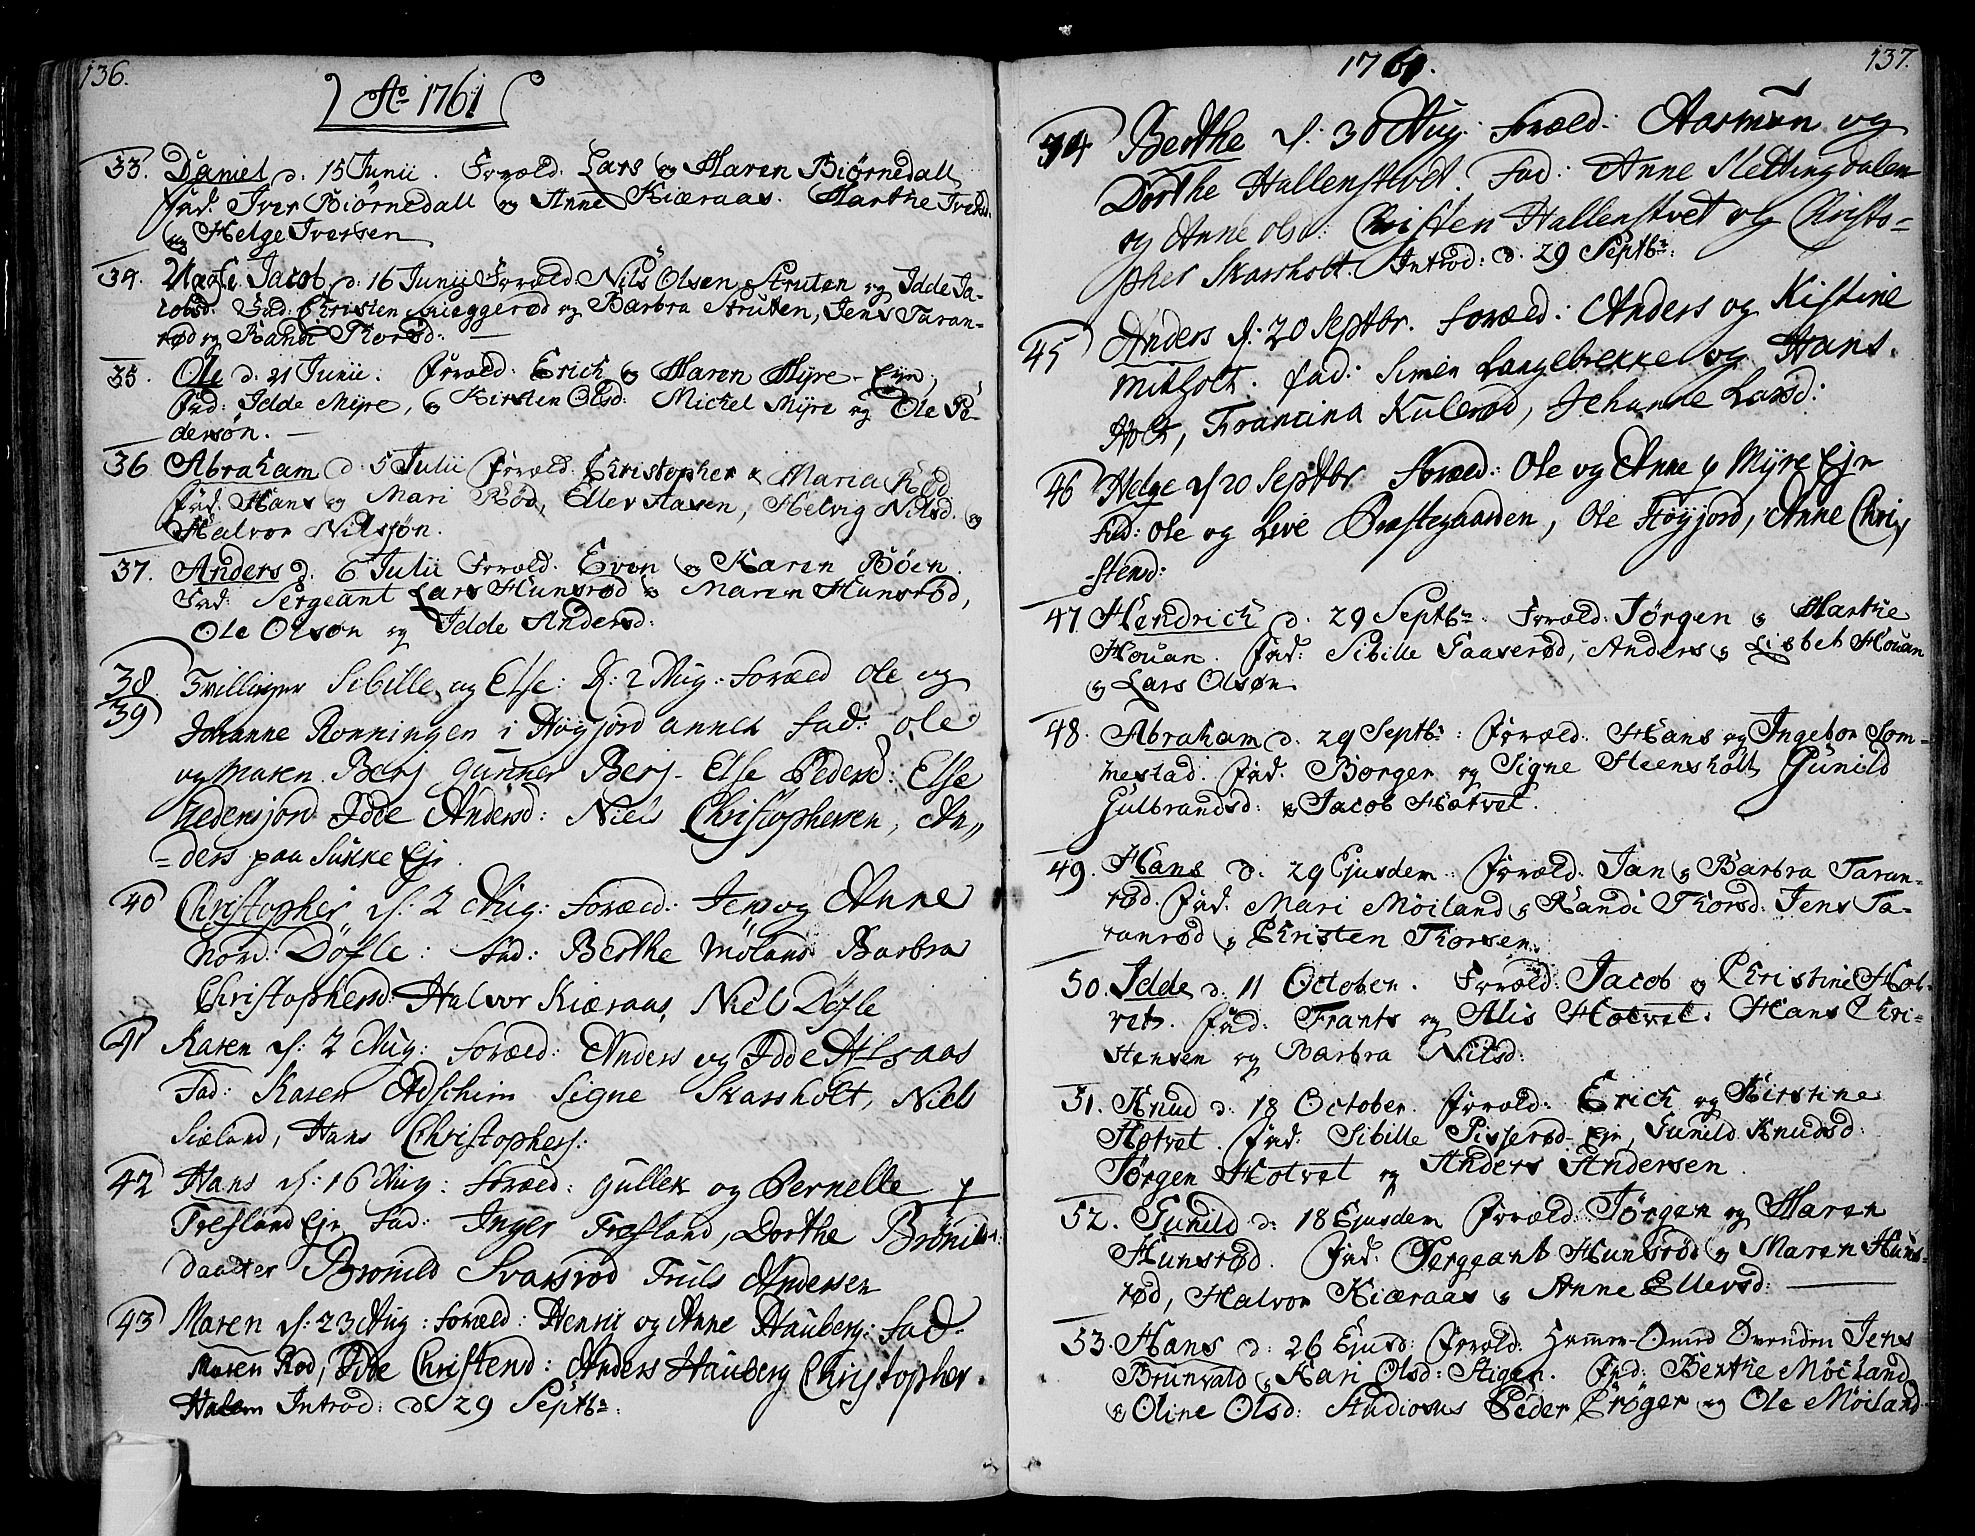 136.
Ao 1761
33. Daniel d. 15 Junii. Foræld. Lars og Maren Biørnedall
fad. Iver Biørnedall og Anne Kiæraas. Marthe Iversd.
og Helge Iversen
34. Uægte Jacob d. 16 Junij Foræld. Nils Olsen Struten og Idde Ja-
cobsd. Fad. Christen Snieggerød og Barbra Struten, Jens Taran-
rød og Randi Thorsd:
35. Ole d. 21 Junii. Foræld. Erich og Maren Myre-Ejn,
Fad: Idde Myre, og Kirsten Olsd: Michel Myre og Ole Pe-
dersøn.
36 Abraham d. 5 Julii Foræld. Christopher & Maria Rød
Fad. Hans og Mari Rød, Ellev Aasen, Helvig Nilsd. og
Halvor Nilssøn.
37. Anders d. 6 Julii Foræld. Even og Karen Bøen.
Fad. Sergeant Lars Hunsrød og Maren Hunsrød,
Ole Olsøn og Idde Andersd:
38 Tvillinger Sibille og Else: d: 2 Aug: foræld Ole og
39 Johanne Ronningen i Høyjord annex fad: Ole
og Maren Berj Gunner Berj. Else Pedersd: Else
Idde Andersd: Niels Christophersen, An„
=ders paa Sukke Ejr.
40 Christopher d: 2 Aug: foræld: Jens og Anne
Nord. Døfle: fad: Berthe Møland Barbra
Christophersd: Halvor Kiæraas, Niels Døfle
41 Karen d: 2 Aug: foræld: Anders og Idde
Fad: Karen Signe Skarsholt, Niels
Siæland, Hans Christophers:
42 Hans d: 16 Aug: foræld: Gullek og Pernelle
Frefland Ejr fad: Inger Frefland, Dorthe Brønilds
daatter Bronild Svarsrød Truls Andersen
43 Maren d: 23 Aug: foræld: Henric og Anne Hauberg: fad:
Maren Rød, Idde Christensd: Anders Hauberg Christopher
Halem Introd: d 29 Septbr:
137.
1761.
44 Berthe d: 30 Aug: foræld: Aasmun og
Dorthe Hallenstvet. fad: Anne Slettingdalen
og Anne Olsd: Christen Hallenstvet og Christo=
pher Skarsholt. Introd: d. 29 Septbr:
45 Anders d: 20 Septbr. foræld: Anders og Kistine
Mitholt. fad: Simen Langebrekke og Hans
Holt, Francina Kulerød, Jehanne Larsd:
46 Helge d 20 Septbr foræld: Ole og Anne Myre Ejr
fad: Ole og Live Præstegaarden, Ole Høyjord, Anne Chri-
-stensd:
47 Hendrich d. 29 Septbr. Foræld: Jørgen og Marthe
Houan. Fad: Sibille Taaserød, Anders og Lisbet Houan
og Lars Olsøn.
48. Abraham d. 29 Septbr: Foræld: Hans og Ingebor Som-
mestad. Fad. Børger og Signe Steensholt, Gunild
Gulbrandsd: og Jacob Hotvet.
49. Hans d. 29 Ejusdem. Foræld. Jan og Barbra Taran-
rød. Fad. Mari Møiland og Randi Thorsd. Jens Ta-
ranrød og Christen Thorsen.
50. Idde d. 11 October. Foræld: Jacob og Christine Hot-
vet. Fad: Frants og Alis Hotvet. Hans Chri-
stensen og Barbra Nilsd:
51. Knud d. 18 October. Foræld: Erich og Kirstine
Hotvet. Fad: Sibille Pisserød-Ejr, Gunild Knudsd.
Jørgen Hotvet og Anders Andersen.
52. Gunild d. 18 Ejusdem Foræld: Jørgen og Maren
Hunsrød. Fad. Sergeant Hunsrød og Maren Huns-
rød, Halvor Kiæraas og Anne Ellevsd:
53. Hans d. 26 Ejusd: Foræld. Jens
Brunvald og Kari Olsd: Stigen. Fad: Berthe Møiland
og Oline Olsd: Studiosus Peder Crøger og Ole Møiland